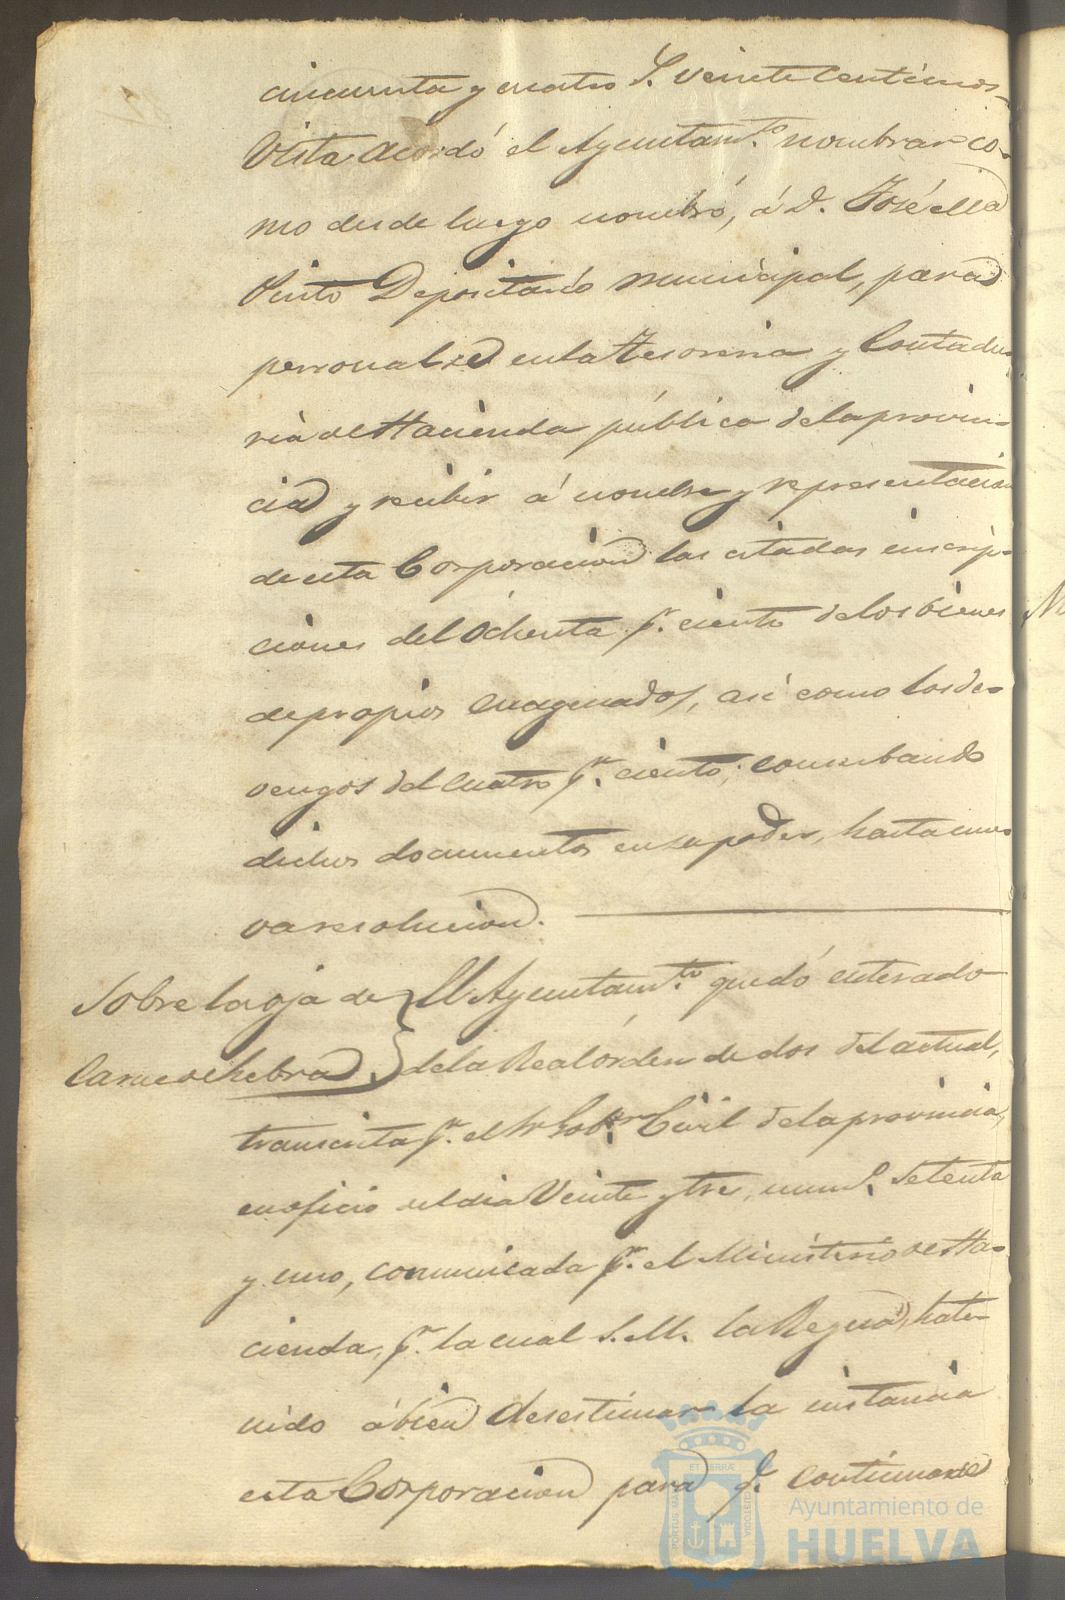 cincuenta y cuatro S. veinte centimos=
Vista acordó el Ayuntam.to nombrar co-
mo desde luego nombró, á D. José Ma
Pinto Depositario municipal, para
personalse en la Tesoreria y Contadu-
ria de Hacienda pública de la provin-
cia y recibir á nombre y representacion
de esta Corporacion las citadas inscrip-
ciones del Ochenta p.r ciento de los bienes
de propios enagenados, asi como los de-
vengos del cuatro p.r ciento; conserbando
dichos documentos en su poder, hasta nue-
va resolucion.
Sobre la oja de
carne de hebra
El Ayuntam.to quedó enterado
de la Real órden de dos del actual,
transcrita p.r el Sr Gob.or Civil de la provincia,
en oficio del dia Veinte y tres, num.o setenta
y uno, comunicada p.r el Ministerio de Ha-
cienda, p.r la cual S. M. la Reyna, ha te-
nido á bien desestimar la instancia
esta Corporacion para q. continuase
PORTUS MARIS
ET TERRÆ
CUSTODIA
Ayuntamiento de
HUELVA